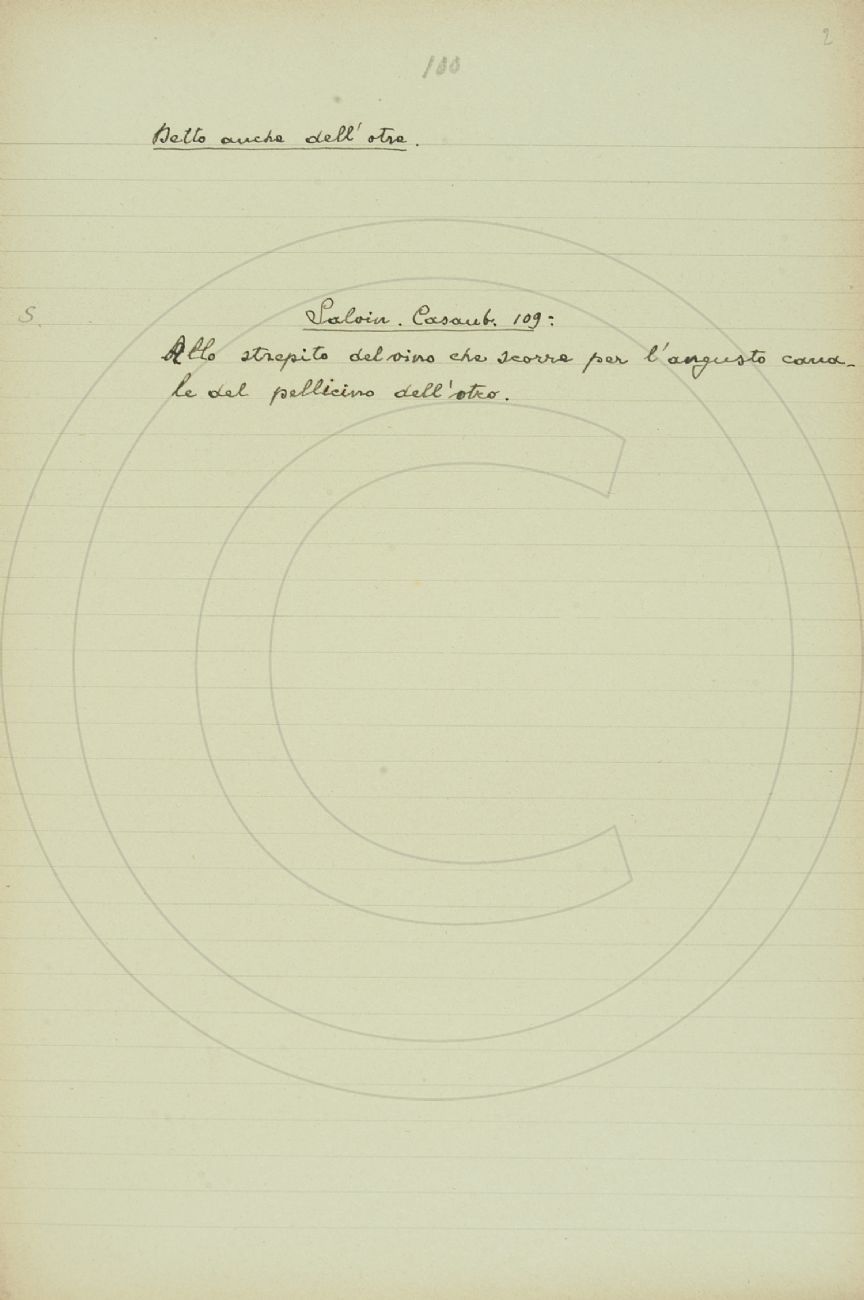 2
100
Detto anche dell' otre.
S.
Salvin. Casaub. 109:
Allo strepito del vino che scorre per l'angusto cana-
le del pellicino dell'otro.